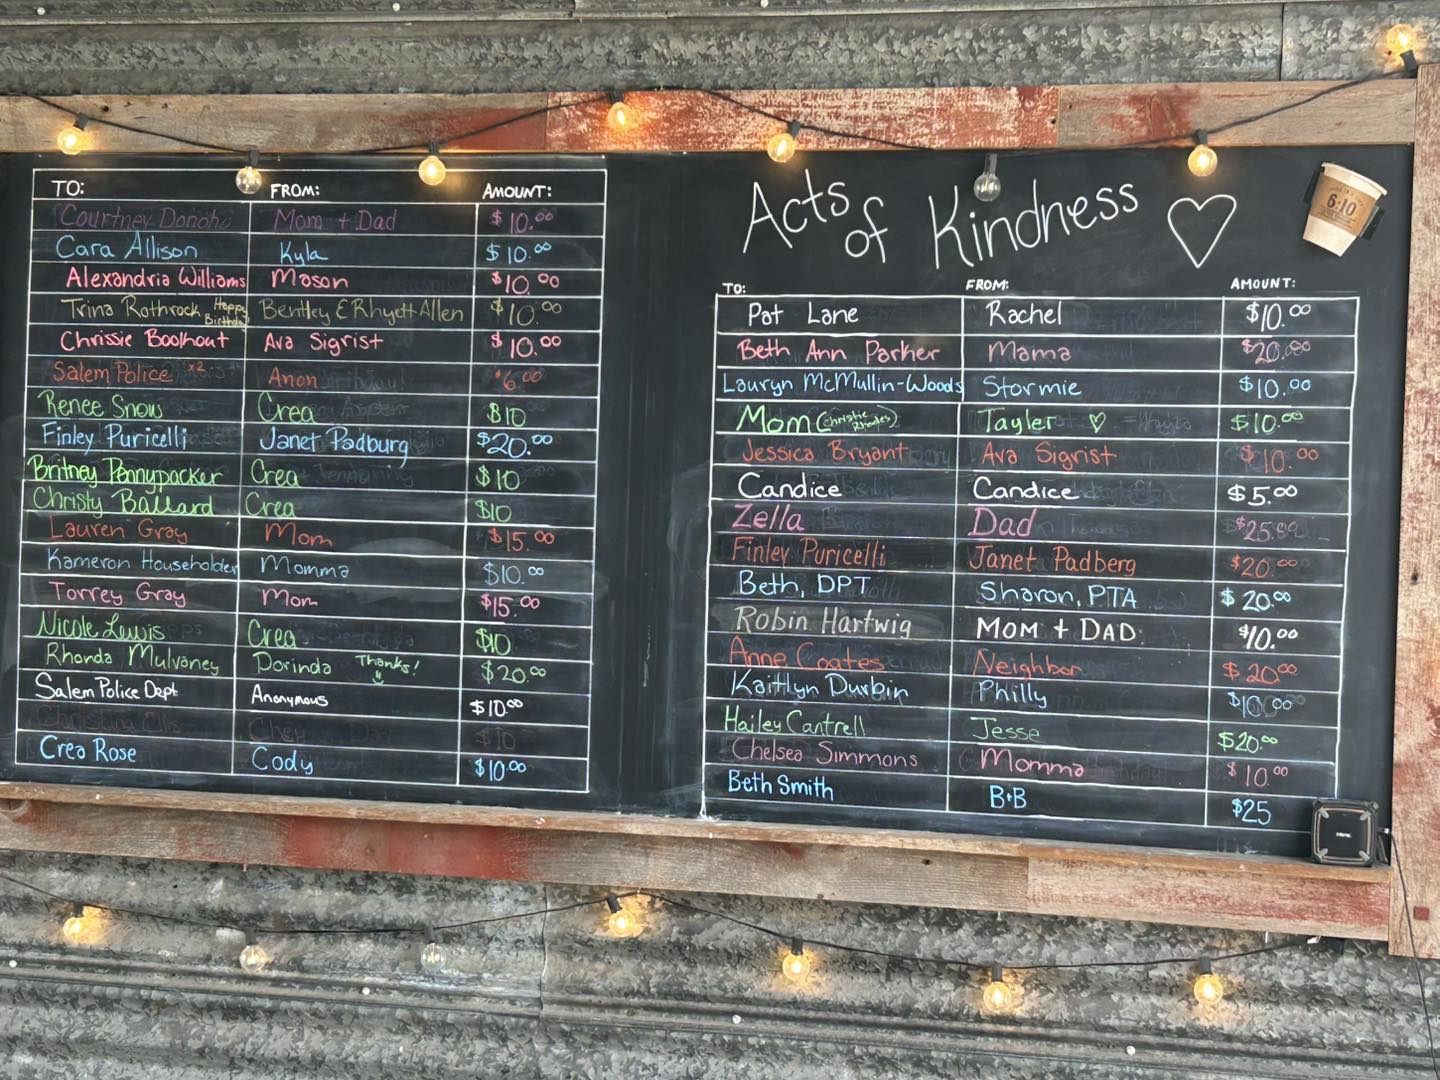 TO: FROM: AMOUNT:
Courtney Donoho Mom + Dad $10.00
Cara Allison Kyla $10.00
Alexandria Williams Mason $10.00
Trina Rothrock Happy Birthday Bentley & Rhyett Allen $10.00
Chrissie Boolhout Ava Sigrist $10.00
Salem Police x2 Anon $6.00
Renee Snow Crea $10
Finley Puricelli Janet Padburg $20.00
Britney Pennypacker Crea $10
Christy Ballard Crea $10
Lauren Gray Mom $15.00
Kameron Householder Momma $10.00
Torrey Gray Mom $15.00
Nicole Lewis Crea $10
Rhonda Mulvaney Dorinda Thanks! $20.00
Salem Police Dept Anonymous $10.00
Christina Ellis Chey $10
Crea Rose Cody $10.00
Acts of Kindness
6:10
TO: FROM: AMOUNT:
Pat Lane Rachel $10.00
Beth Ann Parker Mama $20.00
Lauryn McMullin-Woods Stormie $10.00
Mom (Christie Rhodes) Tayler $10.00
Jessica Bryant Ava Sigrist $10.00
Candice Candice $5.00
Zella Dad $25.00
Finley Puricelli Janet Padberg $20.00
Beth, DPT Sharon, PTA $20.00
Robin Hartwig MOM + DAD $10.00
Anne Coates Neighbor $20.00
Kaitlyn Durbin Philly $10.00
Hailey Cantrell Jesse $20.00
Chelsea Simmons Momma $10.00
Beth Smith B+B $25